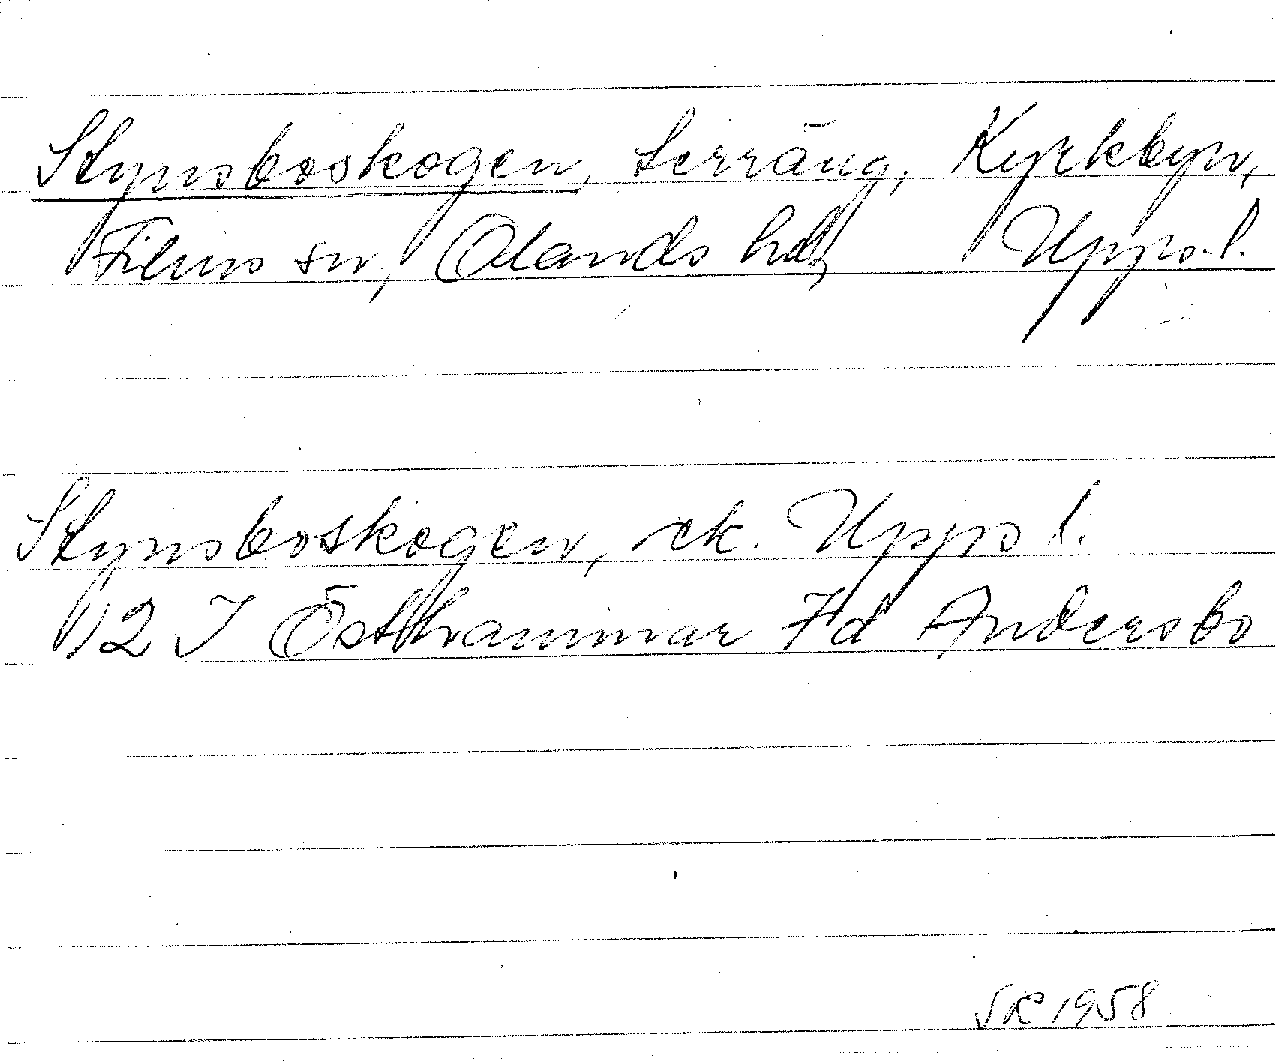 Stynsboskogen, terräng, Kyrkbyn,
Films sn, Olands hd, Upps.l.
Stynsboskogen, ek. Upps l.
12 I Östhammar 7d Andersbo
1958